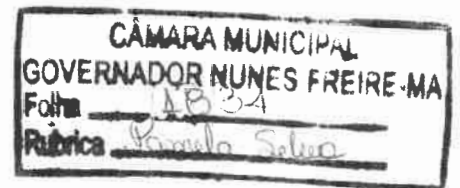 CÂMARA MUNICIPAL
GOVERNADOR NUNES FREIRE-MA
Folha 1834
Rubrica Pamela Selva